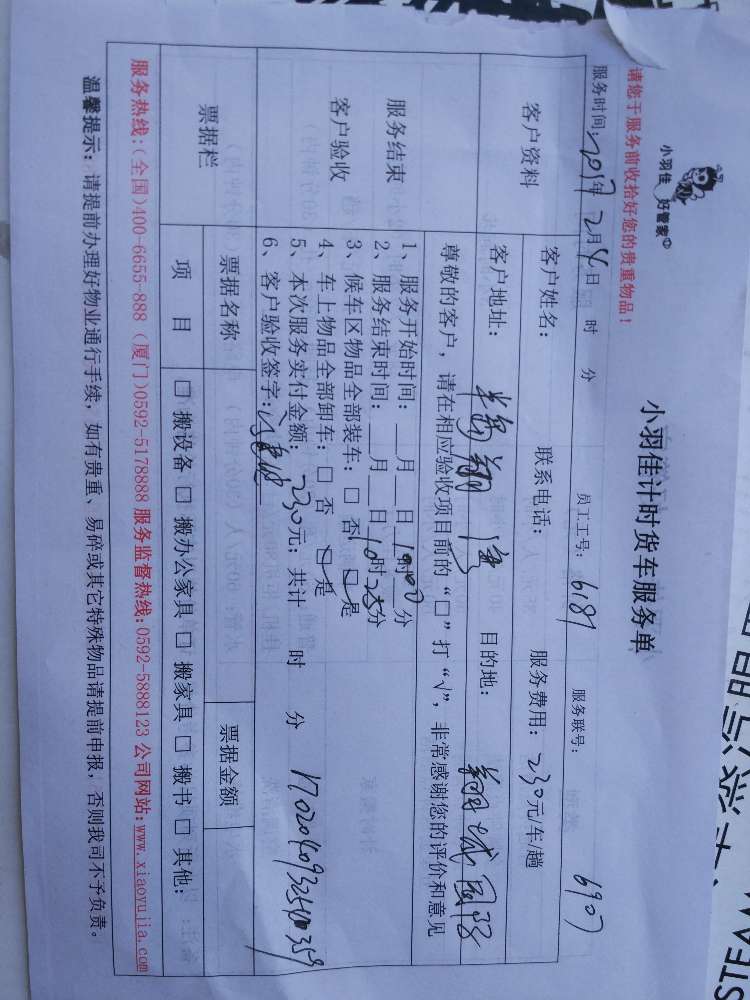 小羽佳 好管家
小羽佳计时货车服务单
请您于服务前收拾好您的贵重物品！
服务时间：2017年2月4日 时 分 员工工号：6187 服务联号：6907
客户资料
客户姓名： 联系电话： 服务费用：230元/车/趟
客户地址： 目的地：翔城国际
尊敬的客户，请在相应验收项目前的“□”打“√”，非常感谢您的评价和意见
服务结束
客户验收
1、服务开始时间：__月__日 时 分
2、服务结束时间：__月__日10时25分
3、候车区物品全部装车：□ 否 □ 是
4、车上物品全部卸车：□ 否 □ 是
5、本次服务实付金额：230元；共计 时 分
6、客户验收签字：
票据栏
票据名称 票据金额
项 目 □ 搬设备 □ 搬办公家具 □ 搬家具 □ 搬书 □ 其他：
服务热线：(全国)400-6655-888 (厦门)0592-5178888 服务监督热线：0592-5888123 公司网站：www.xiaoyujia.com
温馨提示：请提前办理好物业通行手续，如有贵重、易碎或其它特殊物品请提前申报，否则我司不予负责。